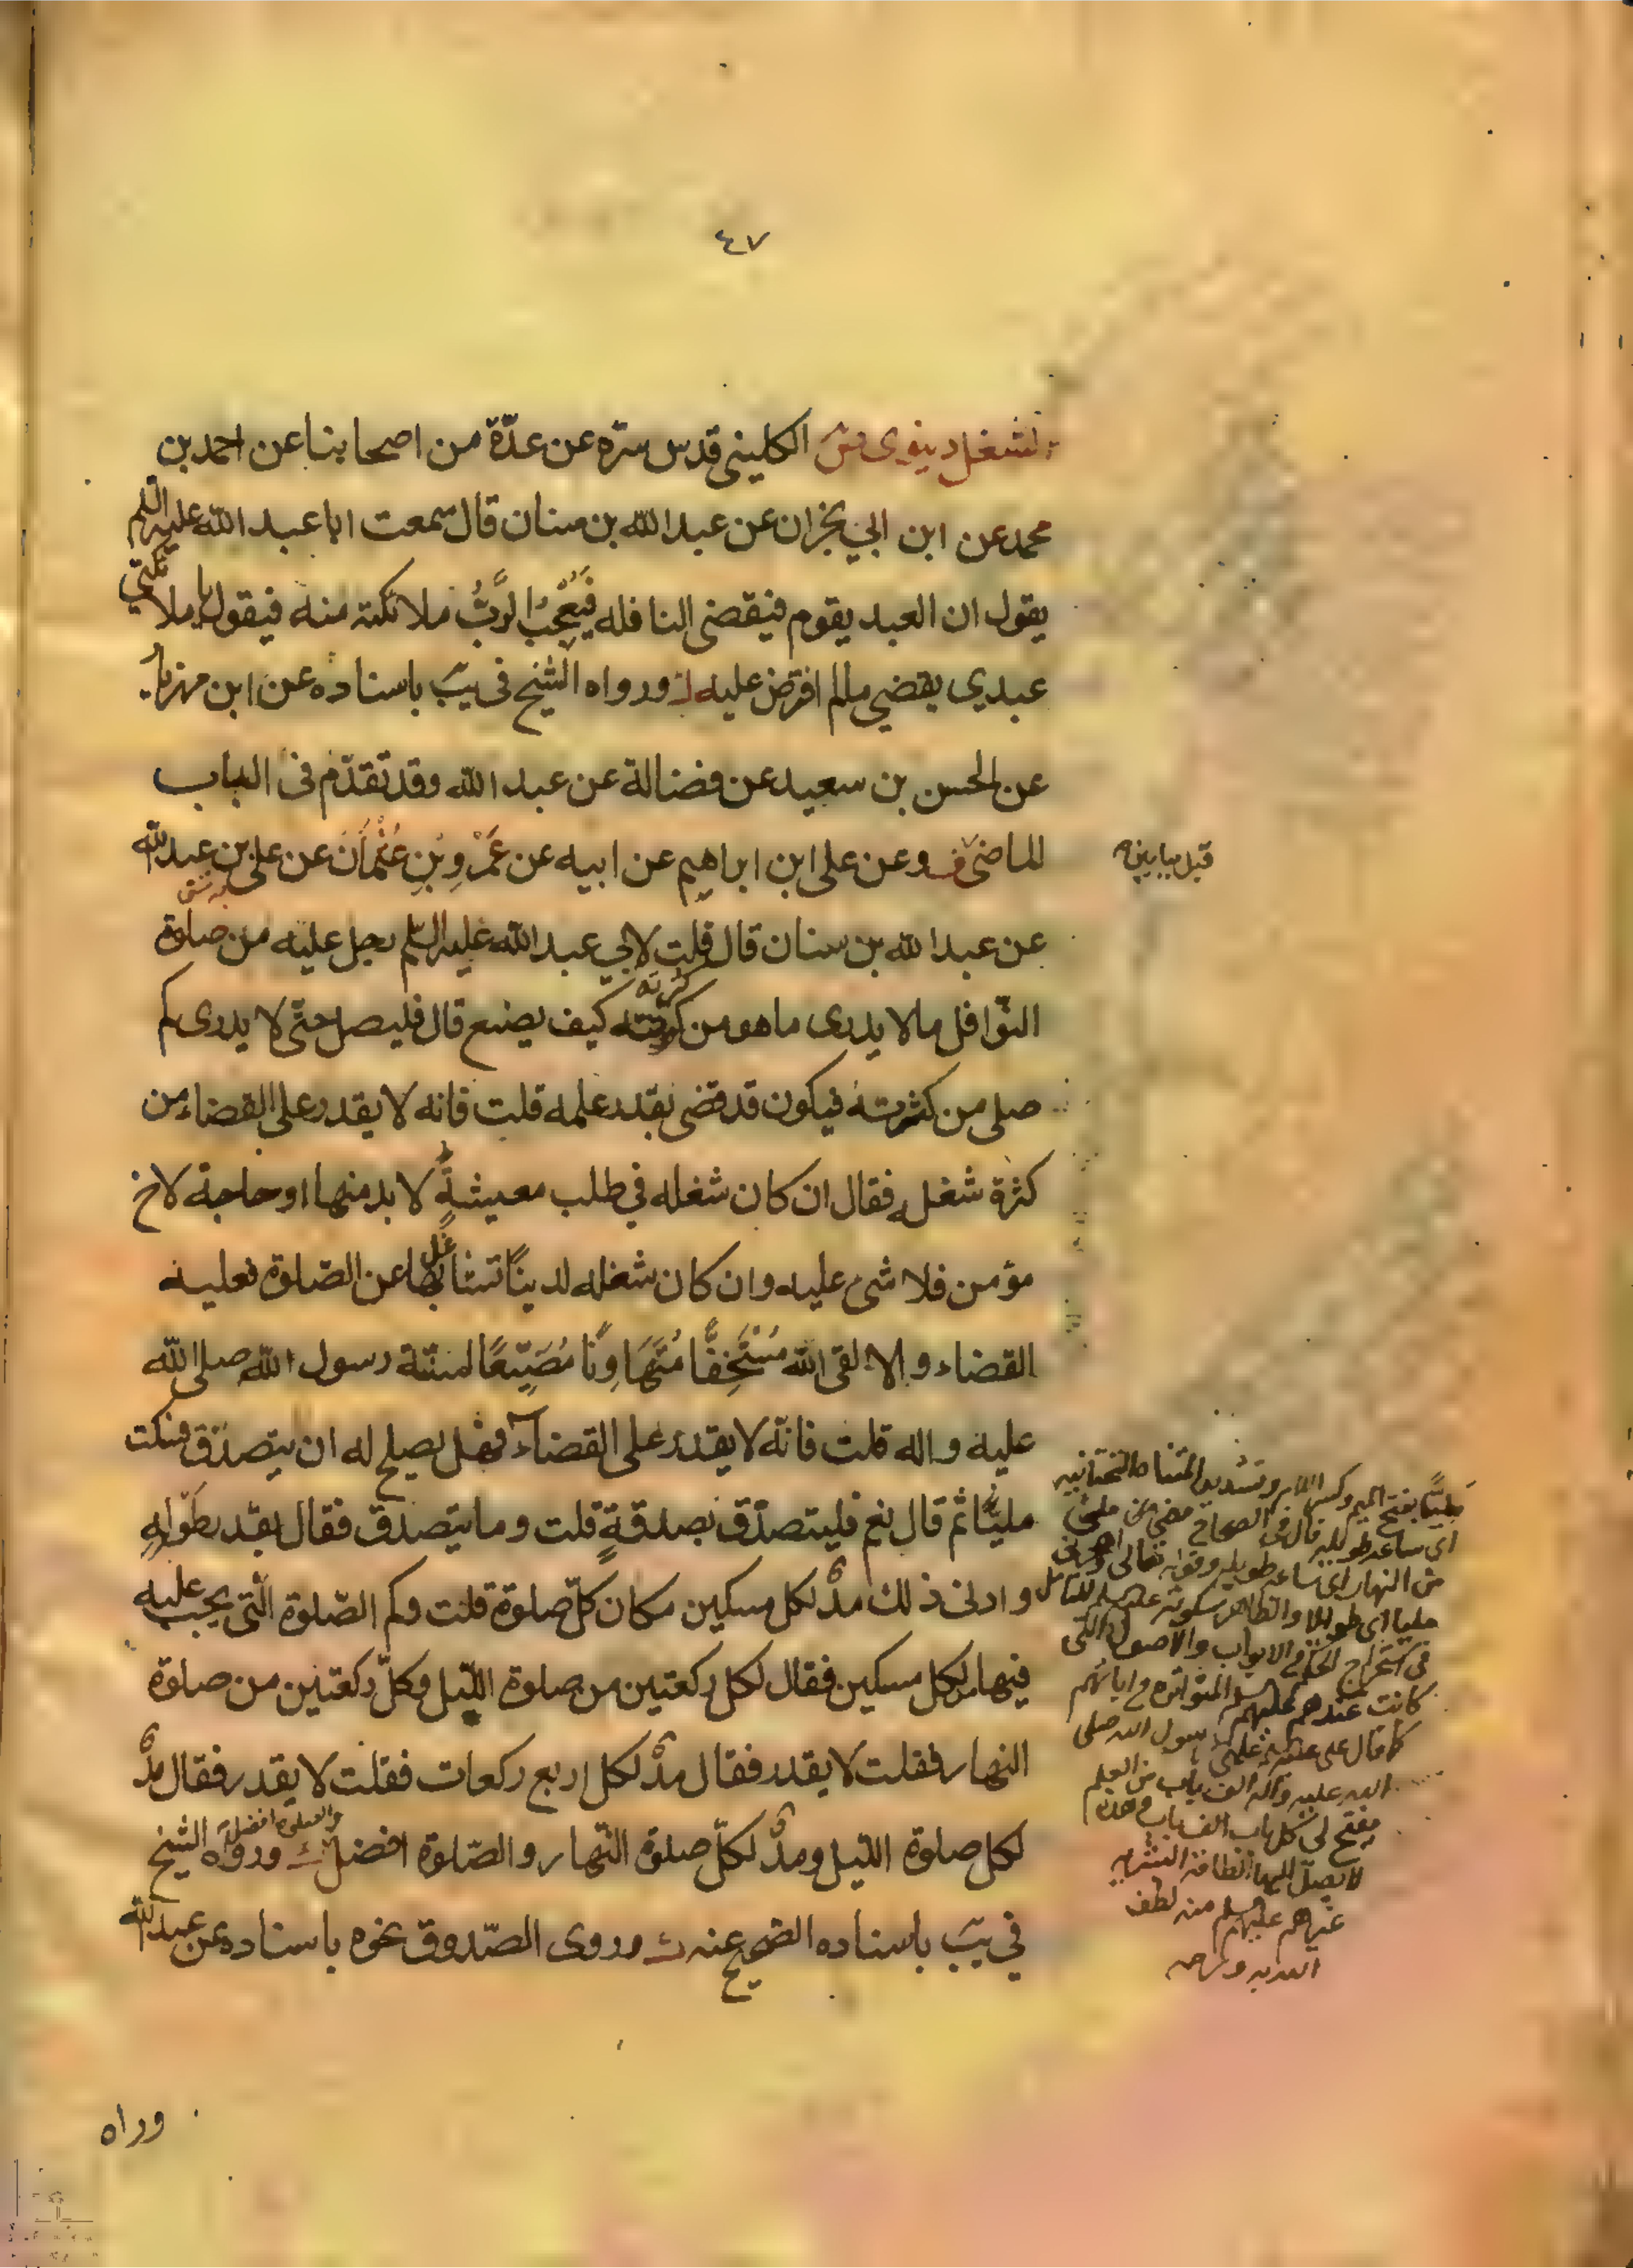 ٤٧
لشغل دينوى الكليني قدس سرّه عن عدّة من اصحابنا عن احمد بن
محمد عن ابن ابي نجران عن عبد الله بن سنان قال سمعت ابا عبد الله عليه السلم
يقول ان العبد يقوم فيقضى النافله فيُعجِبُ الرَّبُّ ملائكته منه فيقول يا ملائكتي
عبدي يقضي مالم افترض عليه ورواه الشيخ فى يبَ باسناده عن ابن مهزيار
عن الحسن بن سعيد عن فضالة عن عبد الله وقد تقدّم فى الباب
الماضى وعن على ابن ابراهيم عن ابيه عن عَمْروِ بْنِ عُثْمَانَ عن على بن عبد الله
قبل بابين
عن عبد الله بن سنان قال قلت لابي عبد الله عليه السلم رجل عليه من صلوة
النّوافل مالا يدرى ما هو من كثرته كيف يصنع قال فليصل حتّى لا يدرى كم
صلى من كثرته فيكون قد قضى بقدر علمه قلت فانه لا يقدر على القضاء من
كثرة شغله فقال ان كان شغله في طلب معيشةٍ لا بد منها او حاجة لاخ
مؤمن فلا شئ عليه وان كان شغله لدينا تشاغل بها عن الصّلوة فعليه
القضاء والا لقى الله مُسْتَخِفًّا مُتَهَاوِنًا مُضَيِّعًا لسنّة رسول الله صلى الله
عليه واله قلت فانّه لا يقدر على القضاء فهل يصلح له ان يتصدّق فسكت
مليًّا ثم قال نعم فليتصدّق بصدقةٍ قلت وما يتصدق فقال بقدر طَوْلِهِ
وادنى ذلك مدٌّ لكل مسكين مكان كلّ صلوة قلت وكم الصّلوة الّتى يجب عليه
فيها مدٌّ لكل مسكين فقال لكل ركعتين من صلوة اللّيل وكلّ ركعتين من صلوة
النهار فقلت لا يقدر فقال مدٌّ لكل اربع ركعات فقلت لا يقدر فقال مدٌّ
لكل صلوة اللّيل ومدٌّ لكلّ صلوة النّهار والصّلوة افضل والصلوة افضل ورواه الشيخ
في يبَ باسناده الصحيح عنه وروى الصّدوق نحوه باسناده عن عبد الله
مليًّا بفتح الميم وكسر اللام وتشديد المثناة التحتانيه
اى ساعة طويلة قال فى الصحاح مضى من ملئ
من النهار اى ساعة طويلة وقوله تعالى واهجرنى
مليا اى طويلا والظاهر سكوته عليه السلم للتأمل
فى استخراج الحكم من الابواب والاصول الى
كانت عندهم عليهم السلم المتواترة من ابائهم
كما قال على علمنى رسول الله صلى
الله عليه وآله الف باب من العلم
يفتح لى كل باب الف باب وهذه
لا يصل اليها الطاقة البشريه
غيرهم عليهم السلم منه لطف
وراه